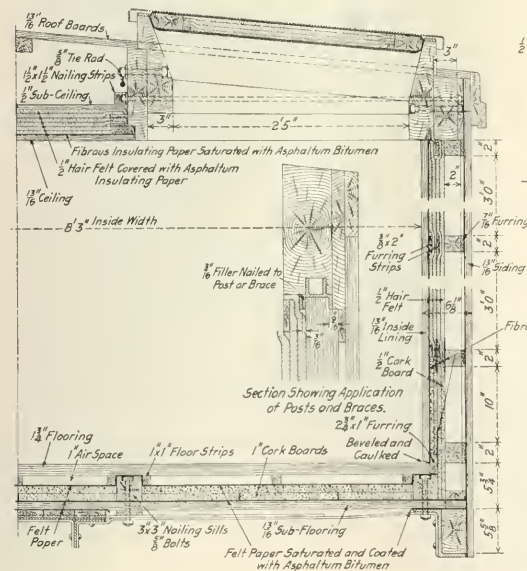 13/16" Roof Boards
5/8" Tie Rad
1 1/2" x 1 1/2" Nailing Strips
1/2" Sub-Ceiling
3"
2'5"
3"
Fibrous Insulating Paper Saturated with Asphaltum Bitumen
1/2" Hair Felt Covered with Asphaltum
Insulating Paper
13/16" Ceiling
8'3" Inside Width
2"
2"
30"
7/16" Furring
3/8" x 2"
Furring
Strips
2"
13/16" Siding
3/16" Filler Nailed to
Post or Brace
1/2" Hair
Felt
6 1/8"
30"
13/16" Inside
Lining
1/2" Cork
Board
2"
Section Showing Application
of Posts and Braces.
2 3/4" x 1" Furring
Beveled and
Caulked
10"
2"
1 3/4" Flooring
1" Air Space
1" x 1" Floor Strips
1" Cork Boards
5 3/4"
Felt
Paper
3" x 3" Nailing Sills
5/8" Bolts
13/16" Sub-Flooring
Felt Paper Saturated and Coated
with Asphaltum Bitumen
5 5/8"